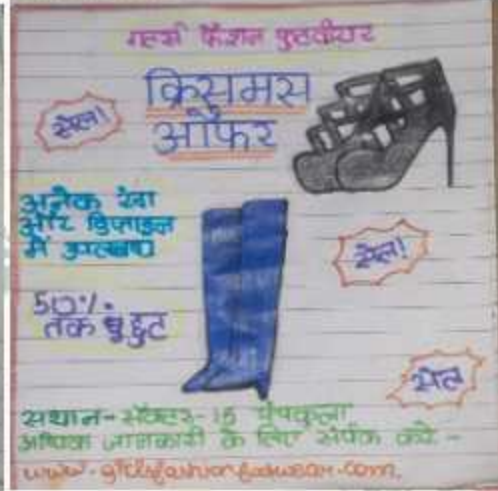 गर्ल्स फैशन फुटवीयर
क्रिसमस
ऑफर
सेल!
अनेक रंग
और डिजाइन
में उपलब्ध
सेल!
50%
तक छुट
सेल
सथान-सेक्टर-15 पंचकुला
अधिक जानकारी के लिए संर्पक करे -
www.girlsfashionfootwear.com.